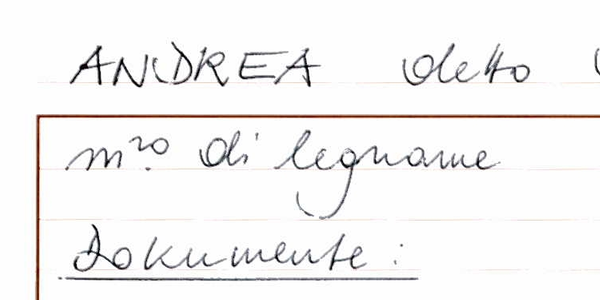 ANDREA detto
m.ro di legname
Dokumente: